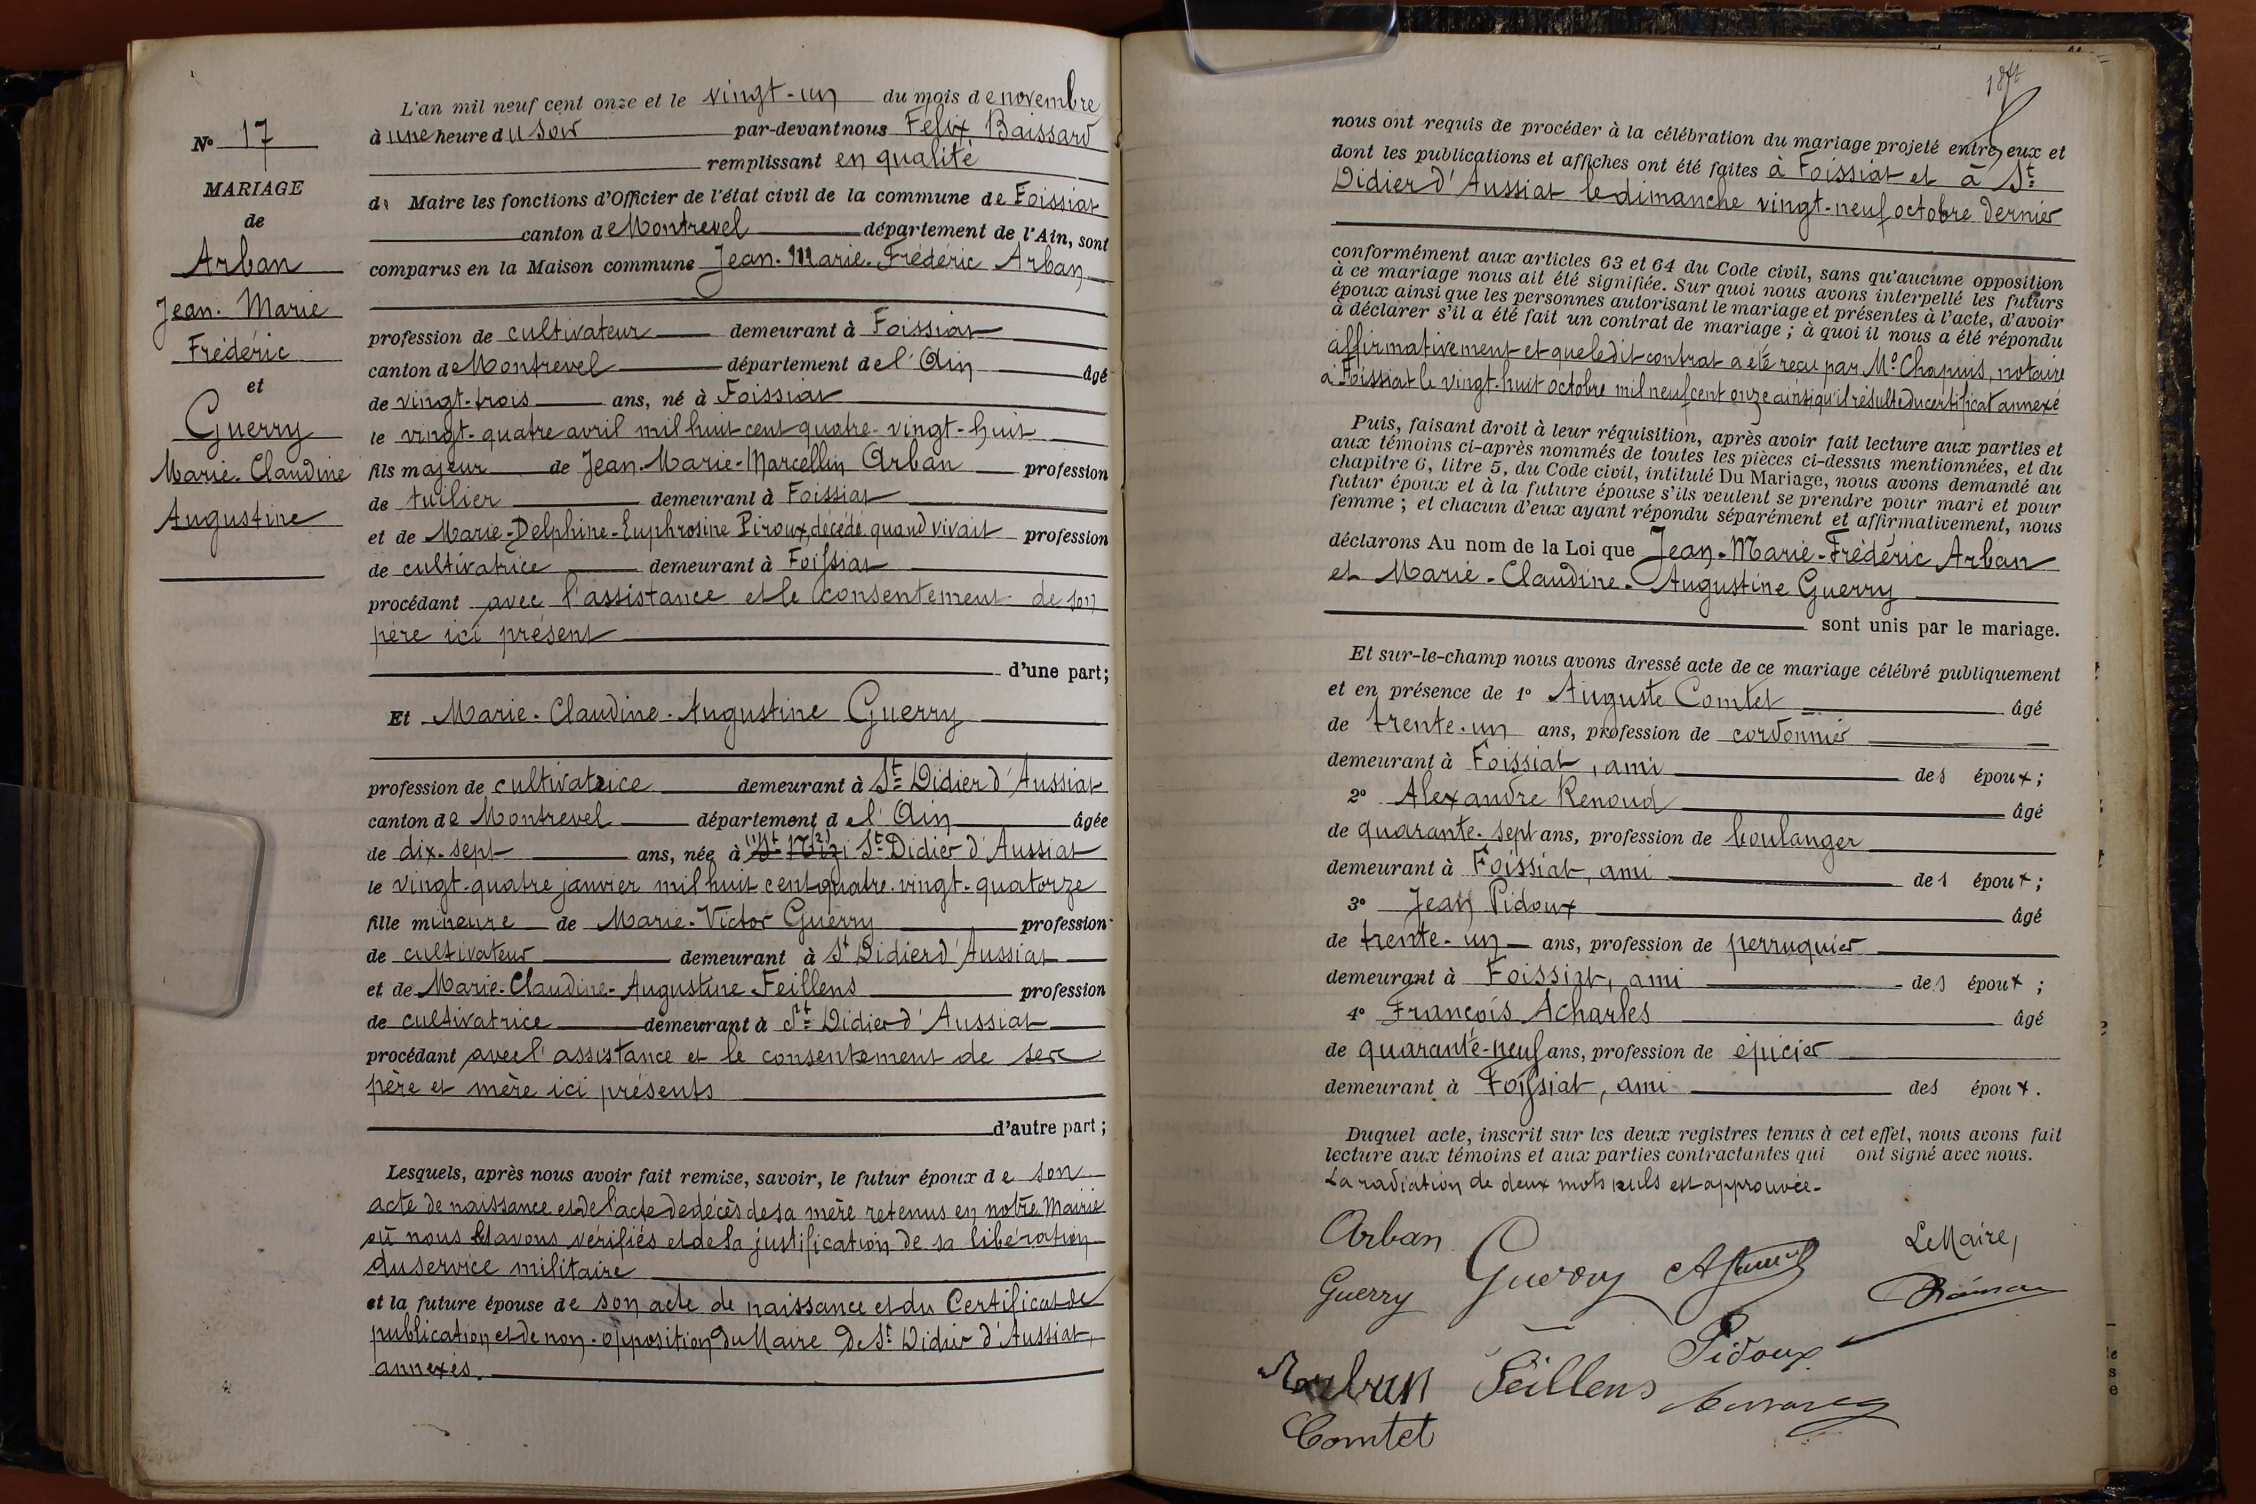 L'an mil neuf cent onze et le vingt-un du mois de novembre
N° 17
à une heure du soir par-devant nous Félix Baissard
remplissant en qualité
MARIAGE
de Maire les fonctions d'Officier de l'état civil de la commune de Foissiat
de
canton de Montrevel département de l'Ain, sont
Arban
comparus en la Maison commune Jean-Marie-Frédéric Arban
Jean-Marie
profession de cultivateur demeurant à Foissiat
Frédéric
canton de Montrevel département de l'Ain âgé
et
de vingt-trois ans, né à Foissiat
Guerry
le vingt-quatre avril mil huit cent quatre-vingt-huit
Marie-Claudine
fils majeur de Jean-Marie-Marcellin Arban profession
de tuilier demeurant à Foissiat
Augustine
et de Marie-Delphine-Euphrosine Piroux, décédé quand vivait profession
de cultivatrice demeurant à Foissiat
procédant avec l'assistance et le consentement de son
père ici présent
d'une part;
Et Marie-Claudine-Augustine Guerry
profession de cultivatrice demeurant à St Didier d'Aussiat
canton de Montrevel département de l'Ain âgée
de dix-sept ans, née à St Didier d'Aussiat
le vingt-quatre janvier mil huit cent quatre-vingt-quatorze
fille mineure de Marie-Victor Guerry profession
de cultivateur demeurant à St Didier d'Aussiat
et de Marie-Claudine-Augustine Feillens profession
de cultivatrice demeurant à St Didier d'Aussiat
procédant avec l'assistance et le consentement de ses
père et mère ici présents
d'autre part;
Lesquels, après nous avoir fait remise, savoir, le futur époux de son
acte de naissance et de l'acte de décès de sa mère retenus en notre Mairie
où nous les avons vérifiés et de la justification de sa libération
du service militaire
et la future épouse de son acte de naissance et du Certificat de
publication et de non-opposition du Maire de St Didier d'Aussiat,
annexés.
nous ont requis de procéder à la célébration du mariage projeté entre eux et
dont les publications et affiches ont été faites à Foissiat et à St
Didier d'Aussiat le dimanche vingt-neuf octobre dernier
conformément aux articles 63 et 64 du Code civil, sans qu'aucune opposition
à ce mariage nous ait été signifiée. Sur quoi nous avons interpellé les futurs
époux ainsi que les personnes autorisant le mariage et présentes à l'acte, d'avoir
à déclarer s'il a été fait un contrat de mariage; à quoi il nous a été répondu
affirmativement et que ledit contrat a été reçu par Me Chapuis, notaire
à Foissiat le vingt-huit octobre mil neuf cent onze ainsi qu'il résulte du certificat annexé
Puis, faisant droit à leur réquisition, après avoir fait lecture aux parties et
aux témoins ci-après nommés de toutes les pièces ci-dessus mentionnées, et du
chapitre 6, titre 5, du Code civil, intitulé Du Mariage, nous avons demandé au
futur époux et à la future épouse s'ils veulent se prendre pour mari et pour
femme; et chacun d'eux ayant répondu séparément et affirmativement, nous
déclarons Au nom de la Loi que Jean-Marie-Frédéric Arban
et Marie-Claudine-Augustine Guerry
sont unis par le mariage.
Et sur-le-champ nous avons dressé acte de ce mariage célébré publiquement
et en présence de 1° Auguste Comtet âgé
de trente-un ans, profession de cordonnier
demeurant à Foissiat, ami des époux;
2° Alexandre Renoud âgé
de quarante-sept ans, profession de boulanger
demeurant à Foissiat, ami des époux;
3° Jean Pidoux âgé
de trente-un ans, profession de perruquier
demeurant à Foissiat, ami des époux;
4° François Acharles âgé
de quarante-neuf ans, profession de épicier
demeurant à Foissiat, ami des époux.
Duquel acte, inscrit sur les deux registres tenus à cet effet, nous avons fait
lecture aux témoins et aux parties contractantes qui ont signé avec nous.
La radiation de deux mots nuls est approuvée.
Arban
Le Maire,
Guerry Guerry
Pidoux
Feillens
Comtet